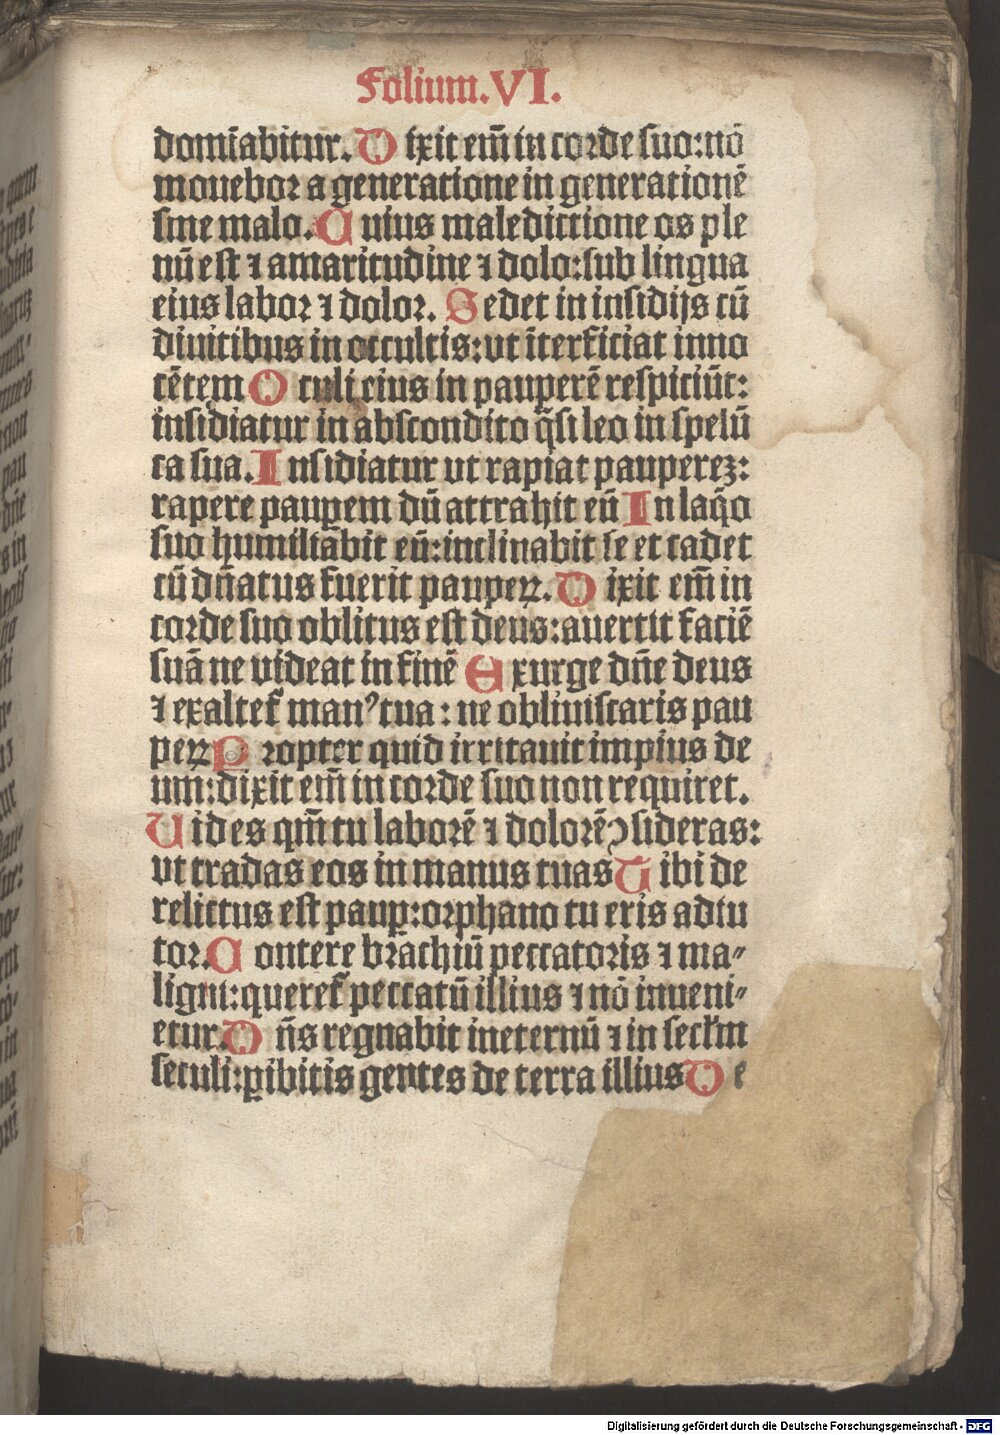 Folium.VI.
domīabitur. Dixit em̄ in corde suo: nō
mouebor a generatione in generationē
sine malo. Cuius maledictione os ple
nū est ⁊ amaritudine ⁊ dolo: sub lingua
eius labor ⁊ dolor. Sedet in insidijs cū
diuitibus in occultis: ut īterficiat inno
cētem Oculi eius in pauperē respiciūt:
insidiatur in abscondito q̄si leo in spelū
ca sua. Insidiatur ut rapiat pauperez:
rapere paupem dū attrahit eū In laq̄o
suo humiliabit eū: inclinabit se et cadet
cū dn̄atus fuerit pauperꝝ. Dixit em̄ in
corde suo oblitus est deus: auertit faciē
suā ne videat in finē Exurge dn̄e deus
⁊ exaltet᷑ man⁹ tua: ne obliuiscaris pau
perꝝ Propter quid irritauit impius de
um: dixit em̄ in corde suo non requiret.
Uides qm̄ tu laborē ⁊ dolorē ꝯsideras:
ut tradas eos in manus tuas Tibi de
relictus est paup̲: orphano tu eris adiu
tor. Contere brachiū peccatoris ⁊ ma-
ligni: queret᷑ peccatū illius ⁊ nō inueni-
etur. Dn̄s regnabit ineternū ⁊ in seclm̄
seculi: ꝑibitis gentes de terra illius De
Digitalisierung gefördert durch die Deutsche Forschungsgemeinschaft - DFG